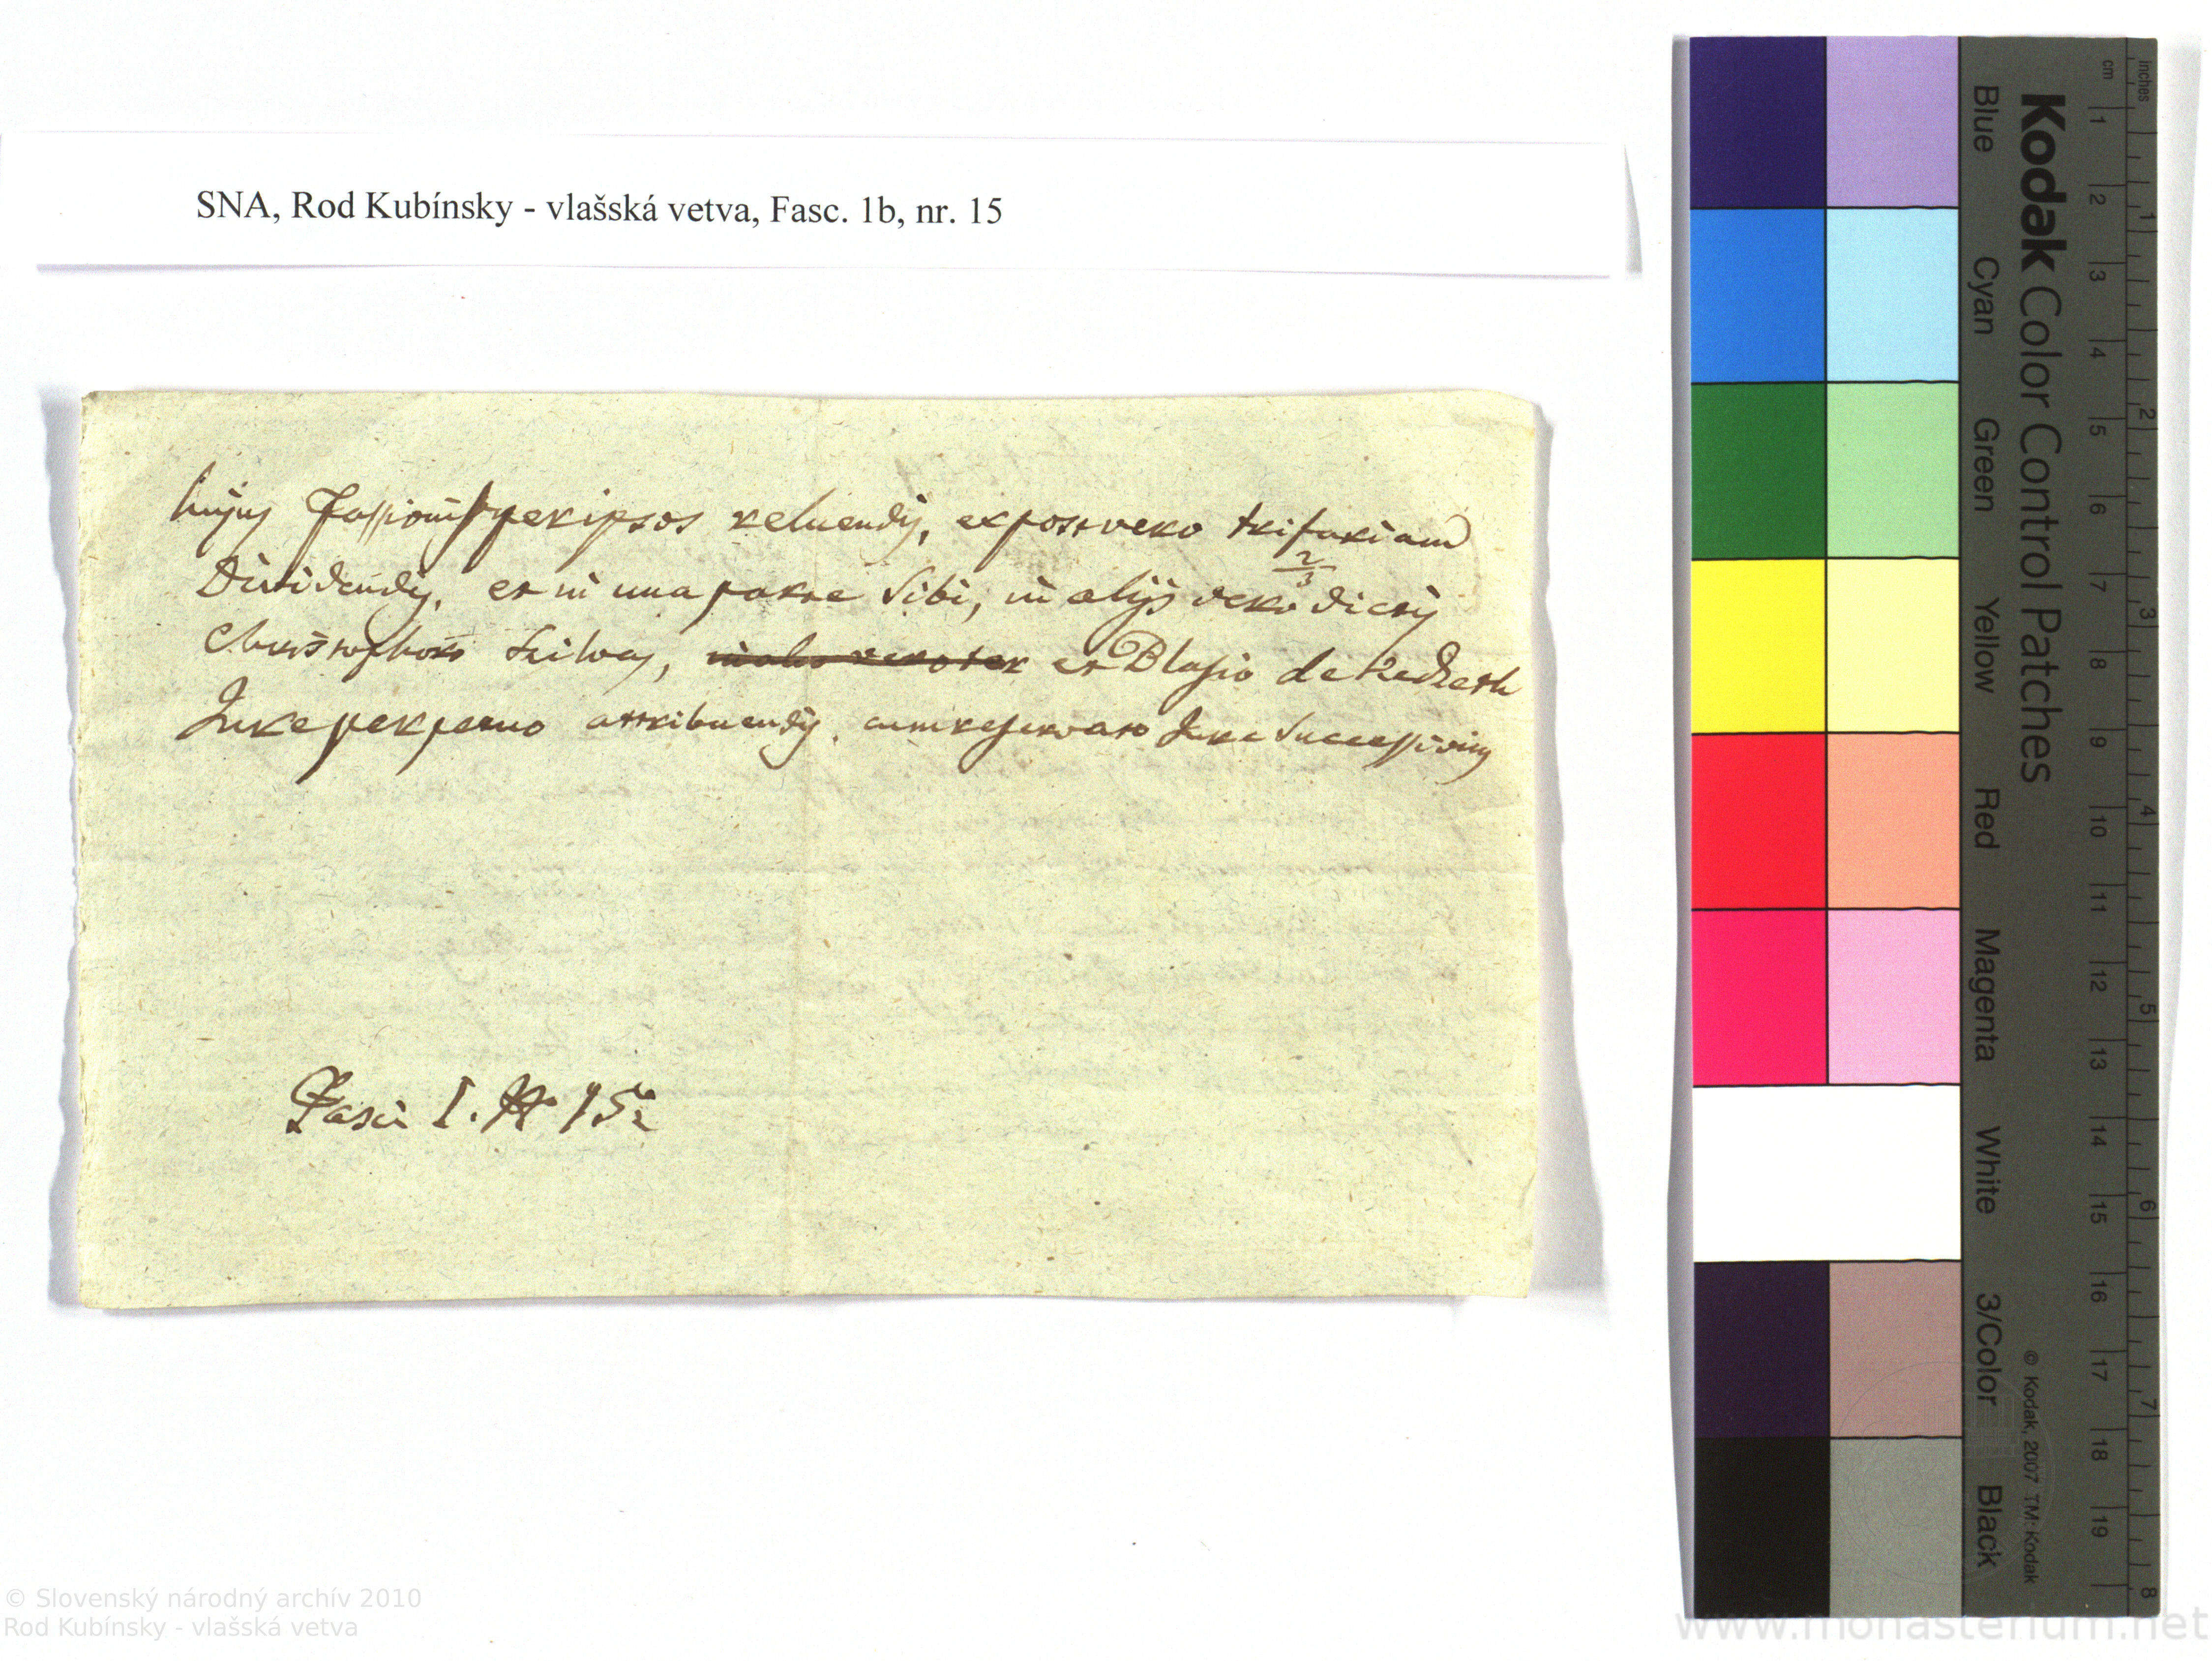 SNA, Rod Kubínsky - vlašská vetva, Fasc. 1b, nr. 15
hujus Fassionis per ipsos reluendis, ex post vero trifariam
Dividendis, et in una parte Sibi, in alijs vero 2/3 dictis
Szilvas, et Blasio de
Jure perpetuo attribuendis, cum reservato Jure Successivius
Fasci I. N 15
Kodak Color Control Patches
Blue Cyan Green Yellow Red Magenta White 3/Color Black
© Kodak, 2007 TM: Kodak
cm 1 2 3 4 5 6 7 8 9 10 11 12 13 14 15 16 17 18 19
inches 1 2 3 4 5 6 7 8
© Slovenský národný archív 2010
Rod Kubínsky - vlašská vetva
www.monasterium.net